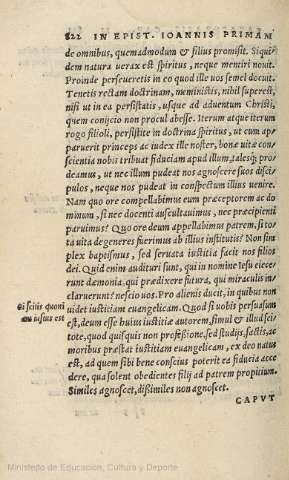 822 IN EPIST. IOANNIS PRIMAM
de omnibus, quemadmodum & filius promisit. Siqui
dem natura uerax est spiritus, neque mentiri nouit.
Proinde perseueretis in eo quod ille uos semel docuit.
Tenetis rectam doctrinam, munimini, nihil superest,
nisi ut in ea persistatis, usque ad aduentum Christi,
quem conijcio non procul abesse. Iterum atque iterum
rogo filioli, persistite in doctrina spiritus, ut cum ap
paruerit princeps ac iudex ille noster, bonæ uitæ con
scientia nobis tribuat fiduciam apud illum, talesq; pro
deamus, ut nec illum pudeat nos agnoscere suos disci
pulos, neque nos pudeat in conspectum illius uenire.
Nam quo ore compellabimus eum præceptorem ac do
minum, si nec docenti auscultauimus, nec præcipienti
paruimus? Quo ore deum appellabimus patrem, si to
ta uita degeneres fuerimus ab illius institutis? Non sim
plex baptismus, sed seruata iustitia facit nos filios
dei. Quid enim audituri sunt, qui in nomine Iesu eiece
runt dæmonia, qui prædixere futura, qui miraculis in
claruerunt? nescio uos. Pro alienis ducit, in quibus non
Si scitis quoni
uidet iustitiam euangelicam. Quod si uobis persuasum
am iustus est
est, deum esse huius iustitiæ autorem, simul & illud sci
tote, quod quisquis non professione, sed studijs, factis, ac
moribus præstat iustitiam euangelicam, ex deo natus
est, ad quem sibi bene conscius poterit ea fiducia acce
dere, qua solent obedientes filij ad patrem propicium.
Similes agnoscet, dissimiles non agnoscet.
CAPVT
Ministerio de Educación, Cultura y Deporte